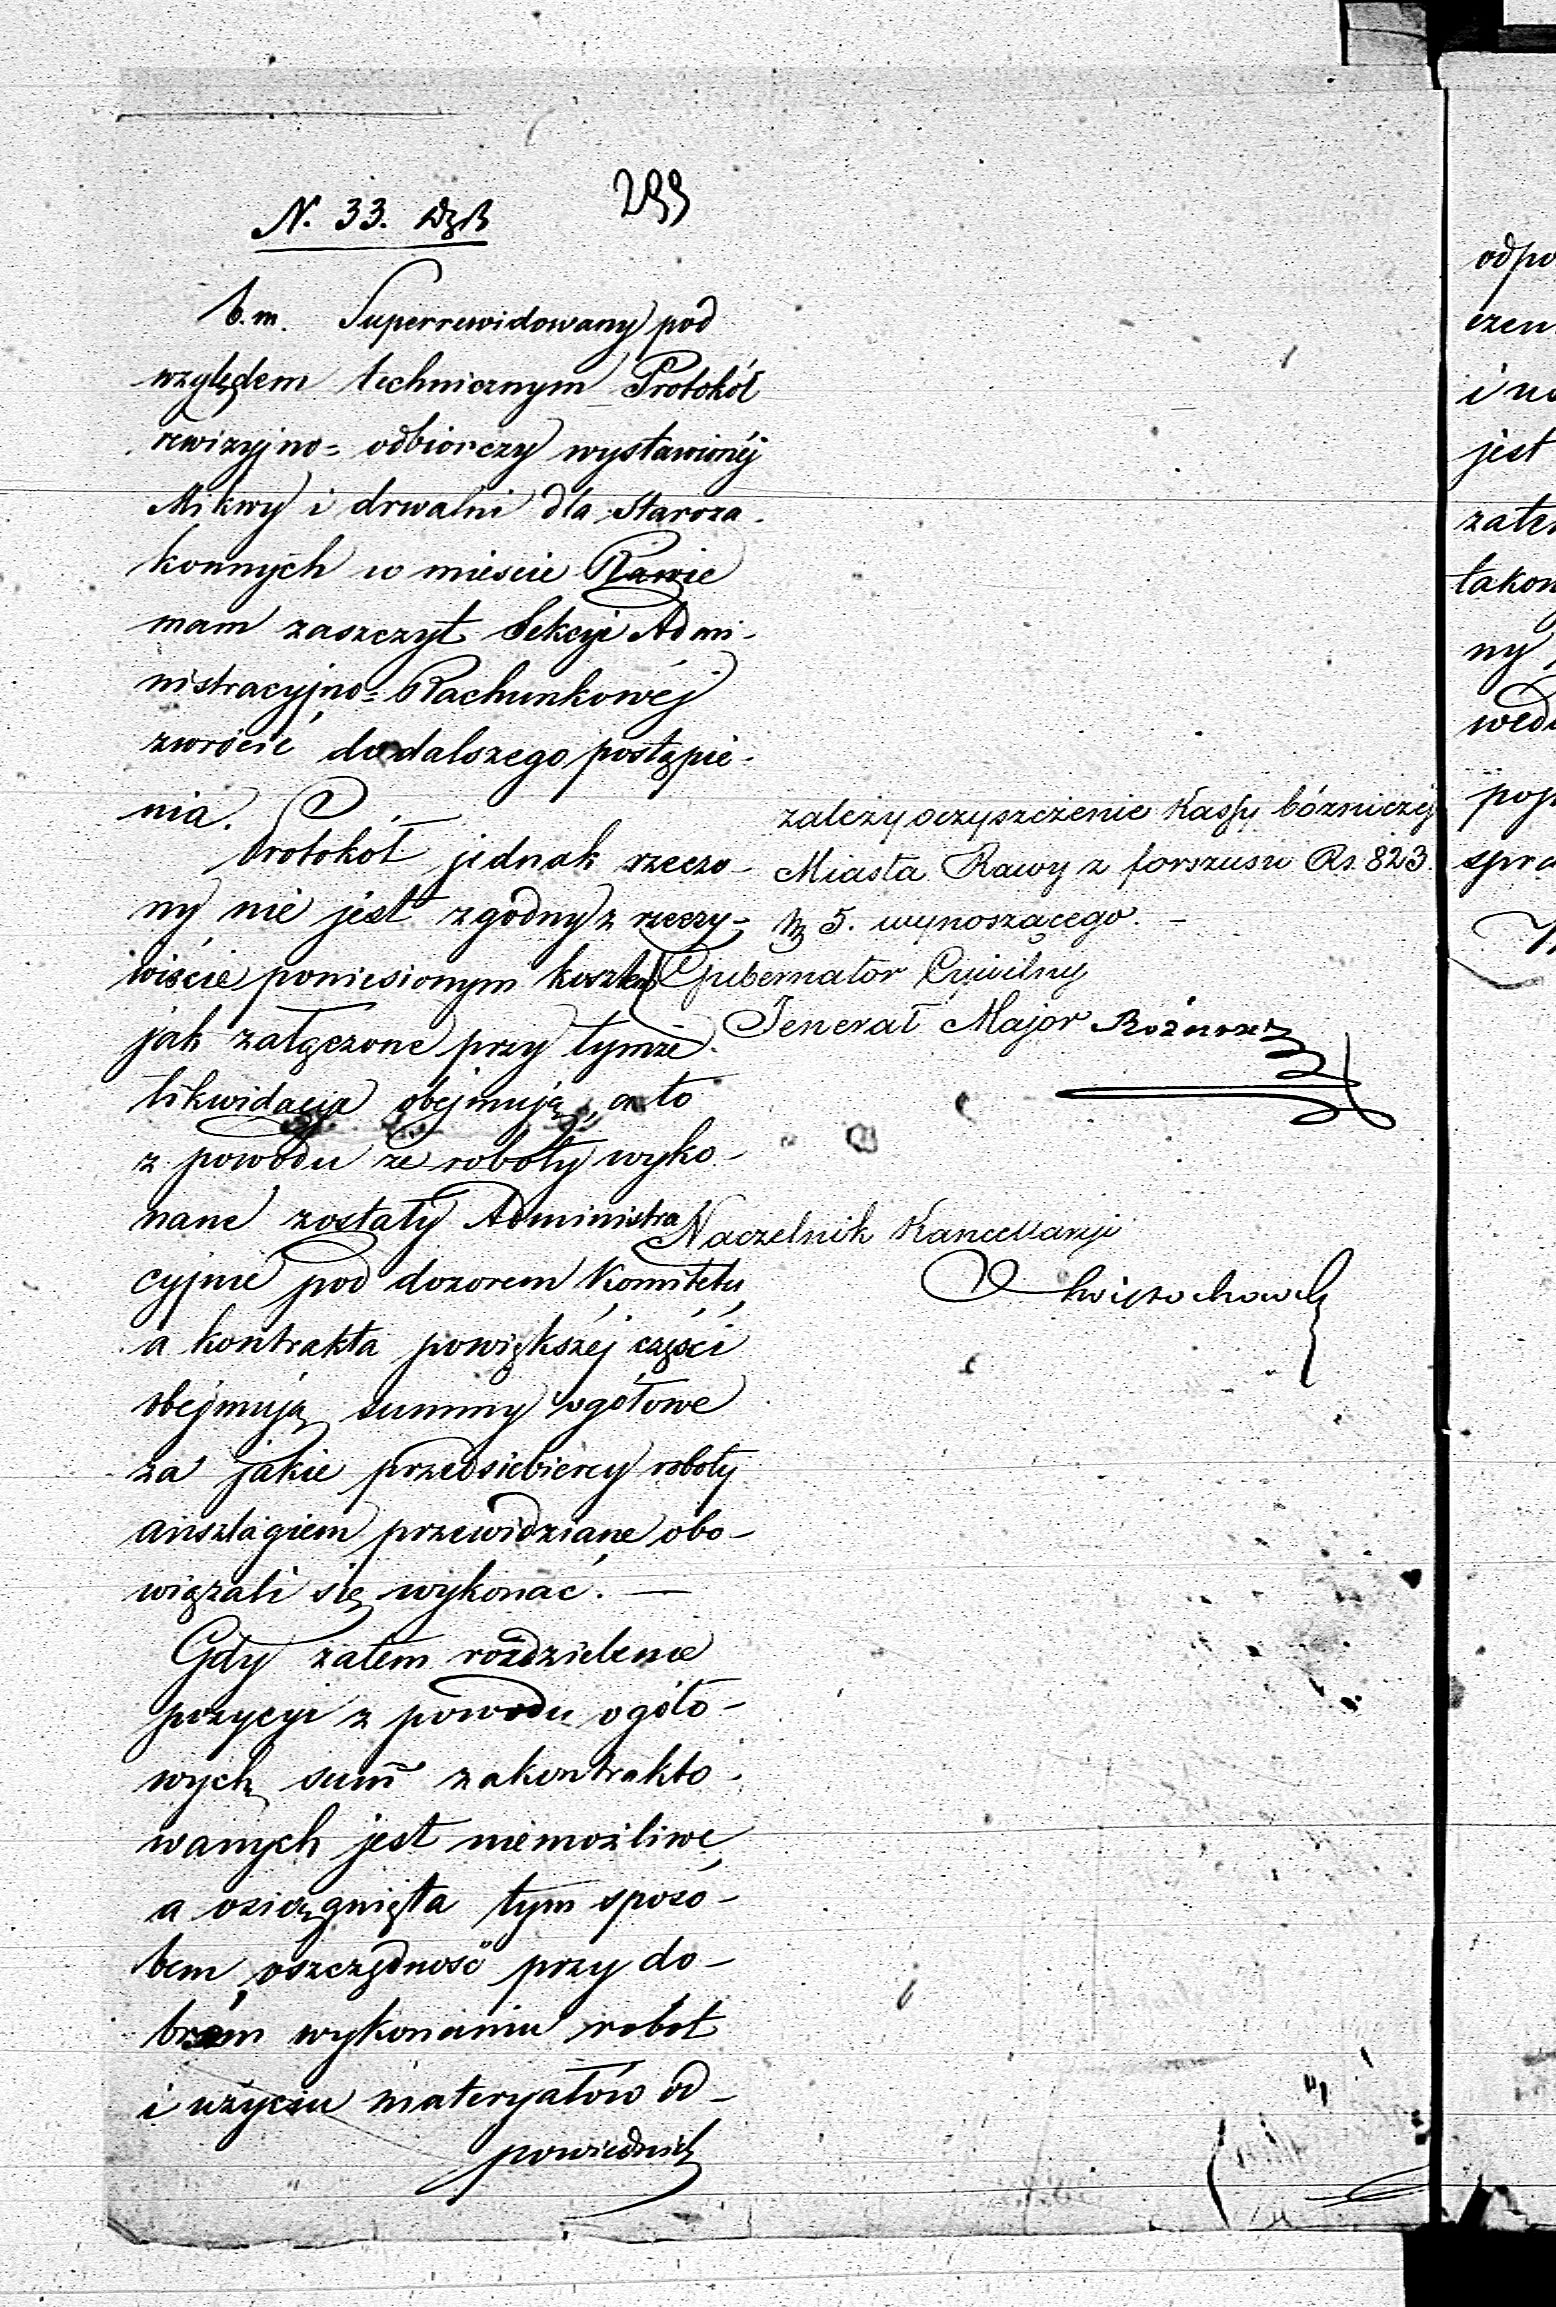 299
N. 33. DzB
b. m. Superrewidowany pod
względem technicznym Protokół
rewizyjno=odbiorczy wystawionéj
Mikwy i drwalni dla Staroza-
konnych w mieście Rawie
mam zaszczyt Sekcyi Admi-
nistracyjno=Rachunkowéj
zwrócić do dalszego postąpie-
nia.
Protokół jednak rzeczo-
ny nie jest zgodny z rzeczy-
wiście poniesionym kosztem
jak załączone przy tymże
likwidacye obejmują, a to
z powodu że roboty wyko-
nane zostały Administra
cyjnie pod dozorem Komitetu,
a kontrakta powiększéj części
obejmują summy ogółowe
za jakie przedsiebiercy roboty
anszlagiem przewidziane obo-
wiązali się wykonać. —
Gdy zatem rozdzielenie
pozycyi z powodu ogóło-
wych sum̄ zakontrakto-
wanych jest niemożliwe,
a osiągnięta tym sposo-
bem oszczędność przy do-
brém wykonaniu robot
i użyciu materyałów od-
powiednich
zależy oczyszczenie Kassy bóżniczéj
Miasta Rawy z forszusu Rs. 823.
k 5. wynoszącego. —
Gubernator Cywilny
Jenerał Major Rożnow
Naczelnik Kancellaryi
Świętochowski
odpo
czen
i u
jest
zate
takon
ny
wedł
pop
spra